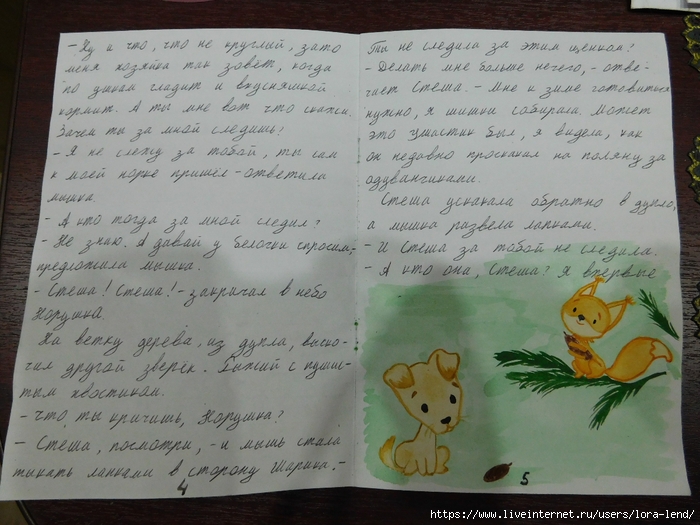 - Ну и что, что не круглый, зато
меня хозяйка так зовёт, когда
по ушкам гладит и вкусняшкой
кормит. А ты мне вот что скажи.
Зачем ты за мной следишь?
- Я не слежу за тобой, ты сам
к моей норке пришёл - ответила
мышка.
- А кто тогда за мной следил?
- Не знаю. А давай у белочки спросим,-
предложила мышка.
- Стеша! Стеша! - закричал в небо
Норушка.
На ветку дерева, из дупла, выско-
чил другой зверёк. Рыжий с пушис-
тым хвостиком.
- Что, ты кричишь, Норушка?
- Стеша, посмотри, - и мышь стала
тыкать лапками в сторону Шарика,-
4
Ты не следила за этим щенком?
- Делать мне больше нечего, - отве-
чает Стеша. - Мне к зиме готовиться
нужно, я шишки собирала. Может
это ушастик был, я видела, как
он недавно проскакал на поляну за
одуванчиками.
Стеша ускакала обратно в дупло,
а мышка развела лапками.
- И Стеша за тобой не следила.
- А кто она, Стеша? Я впервые
5
https://www.liveinternet.ru/users/lora-lend/